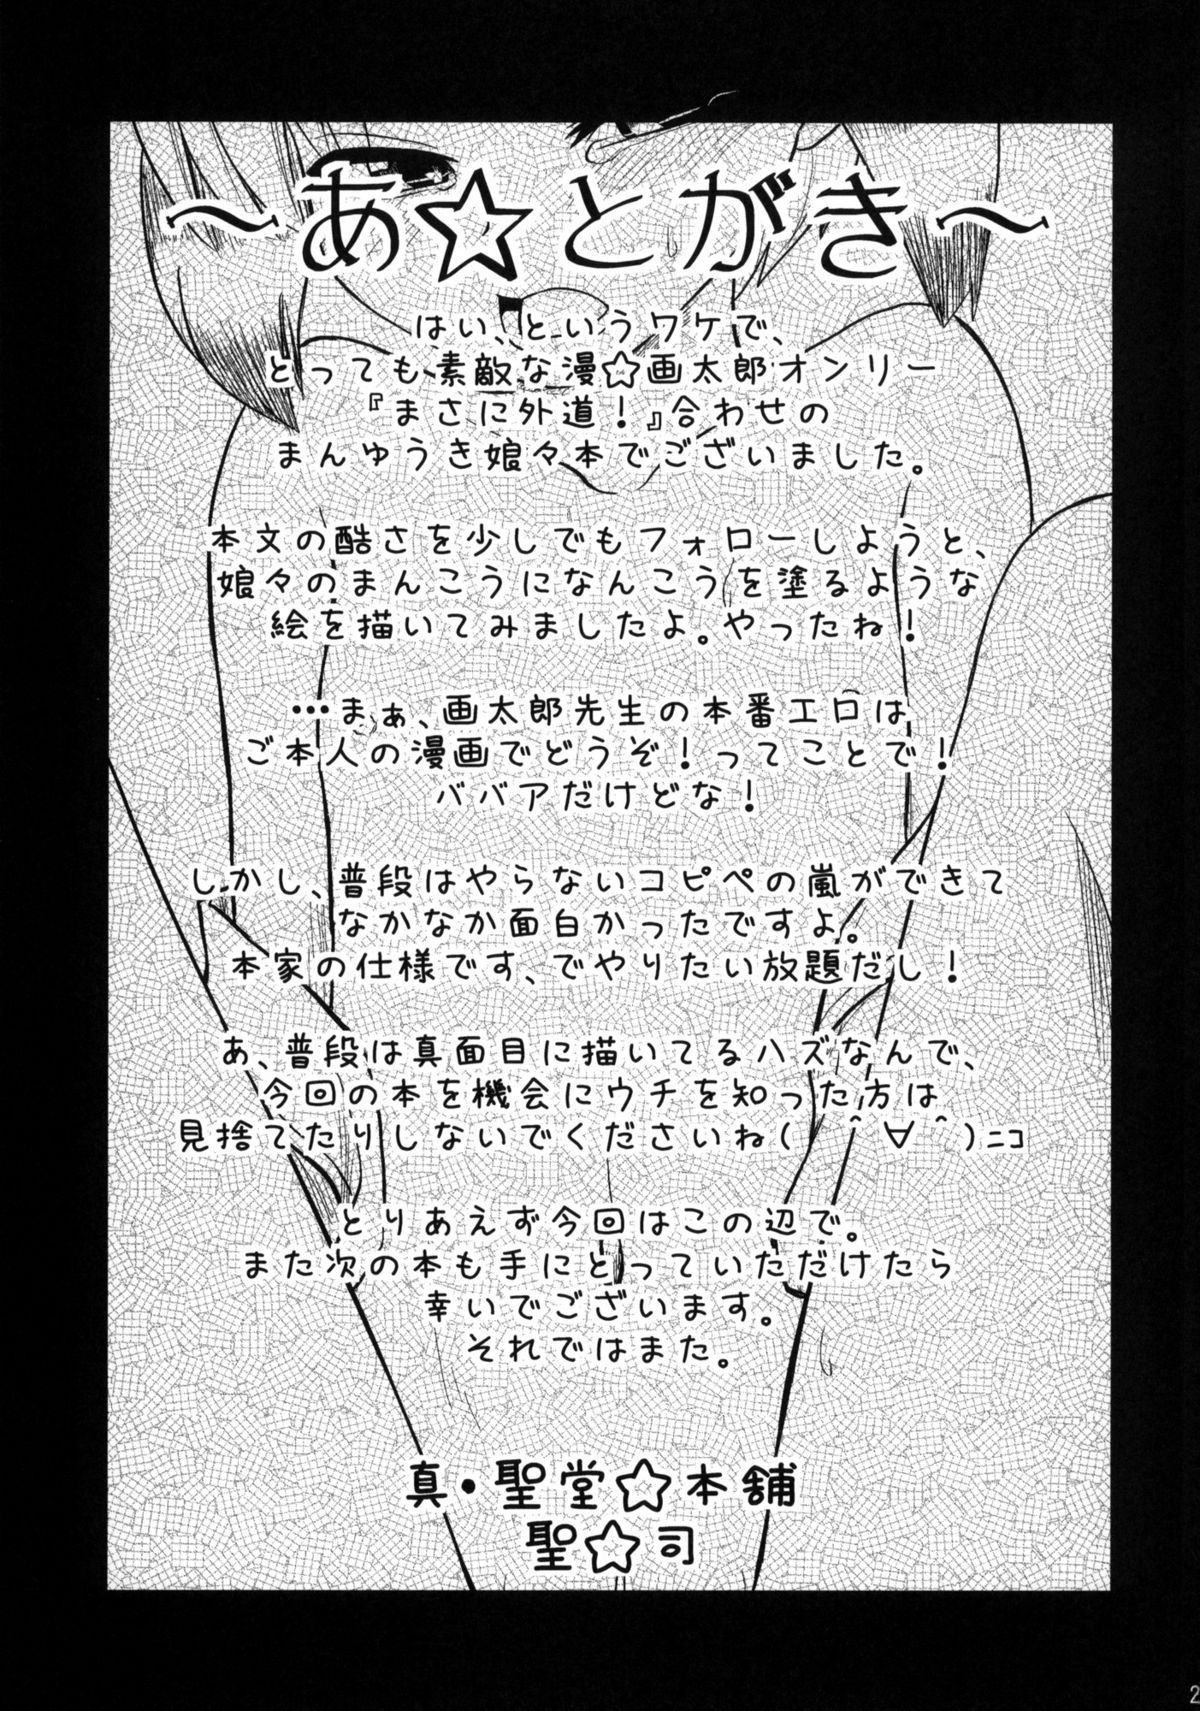 ～あ☆とがき～
はい、というワケで、
とっても素敵な漫☆画太郎オンリー
『まさに外道！』合わせの
まんゆうき娘々本でございました。
本文の酷さを少しでもフォローしようと、
娘々のまんこうになんこうを塗るような
絵を描いてみましたよ。やったね！
…まぁ、画太郎先生の本番エロは
ご本人の漫画でどうぞ！ってことで！
ババアだけどな！
しかし、普段はやらないコピペの嵐ができて
なかなか面白かったですよ。
本家の仕様です、でやりたい放題だし！
あ、普段は真面目に描いてるハズなんで、
今回の本を機会にウチを知った方は
見捨てたりしないでくださいね(　＾∀＾)ﾆｺ
とりあえず今回はこの辺で。
また次の本も手にとっていただけたら
幸いでございます。
それではまた。
真・聖堂☆本舗
聖☆司